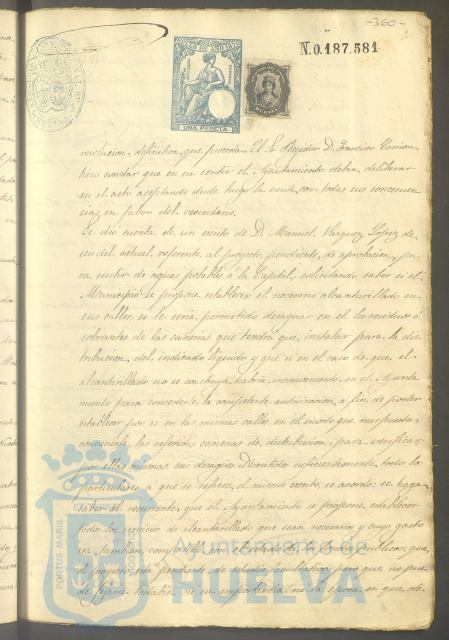 -360-
N.0.187.581
SELLO DE AÑO 187
UNA PESETA
resolucion definitiva que proceda. El Sr. Regidor D. Francisco Carrion
hizo constar que en su sentir el Ayuntamiento debia deliberar
en el acto aceptando desde luego la venta con todas sus consecuen
cias en favor del vecindario.
Se dió cuenta de un escrito de D. Manuel Vazquez Lopez de
del actual, referente al proyecto, pendiente de aprobacion, pa
ra surtir de aguas potables á la Capital, solicitando saber si el
Municipio se propone establecer el necesario alcantarillado en
sus calles, si le será permitido desaguar en él los residuos ó
sobrantes de las cañerias que tendrá que instalar para la dis
tribucion del indicado liquido y que si en el caso de que el
alcantarillado no se construya, habria inconveniente en el Ayunta
miento para concederle la competente autorizacion á fin de poder
establecer por si en las mismas calles en el modo que mas pueda
convenirle las referidas cañerias de distribucion, para verificar
por ellas mismas sus desagües. Discutidos suficientemente todos los
particulares á que se refiere el mismo escrito, se acordó: se haga
saber al recurrente que el Ayuntamiento se propone establecer
todos los servicios de alcantarillado que sean necesarios y cuyo gasto
sea tambien compatible con el estado de los fondos publicos; que
el proyecto está pendiente de estudio facultativo; pero que no pue
de fijarse todavia ni su importancia, ni la época en que de
PORTUS MARIS
Ayuntamiento de
HUELVA